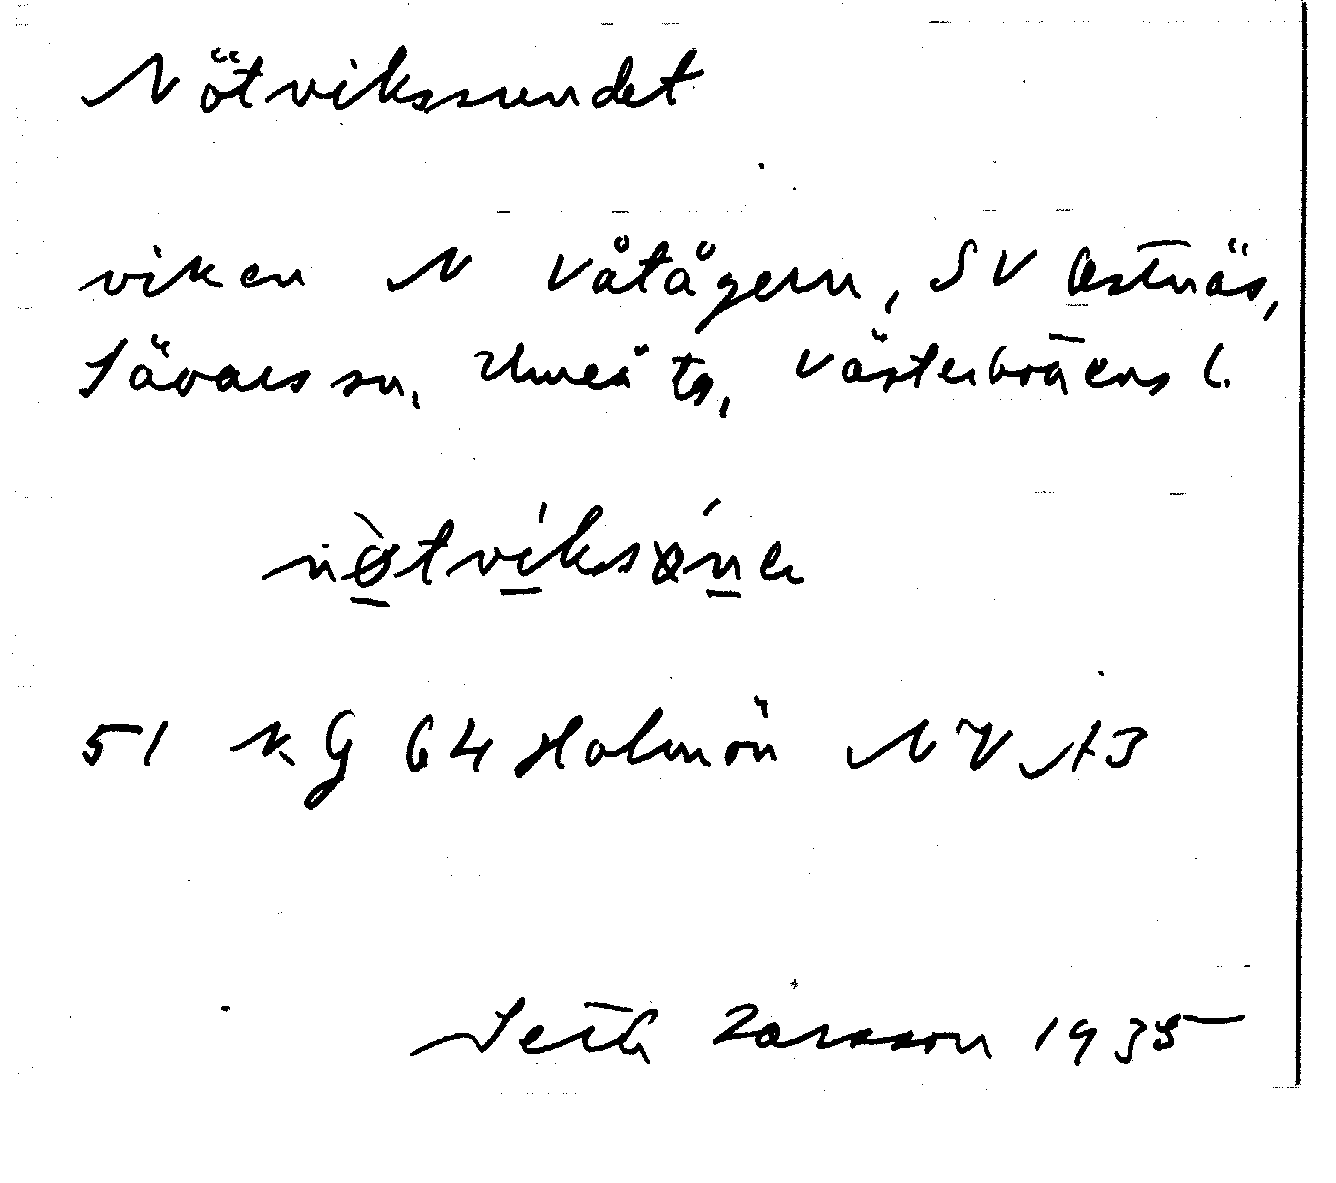 Nötvikssundet
viken N Våtögern, SV Ostnäs,
Sävars sn, Umeå ts, Västerbottens l.
51 KG 64 Holmön NV A3
Seth Larsson 1935